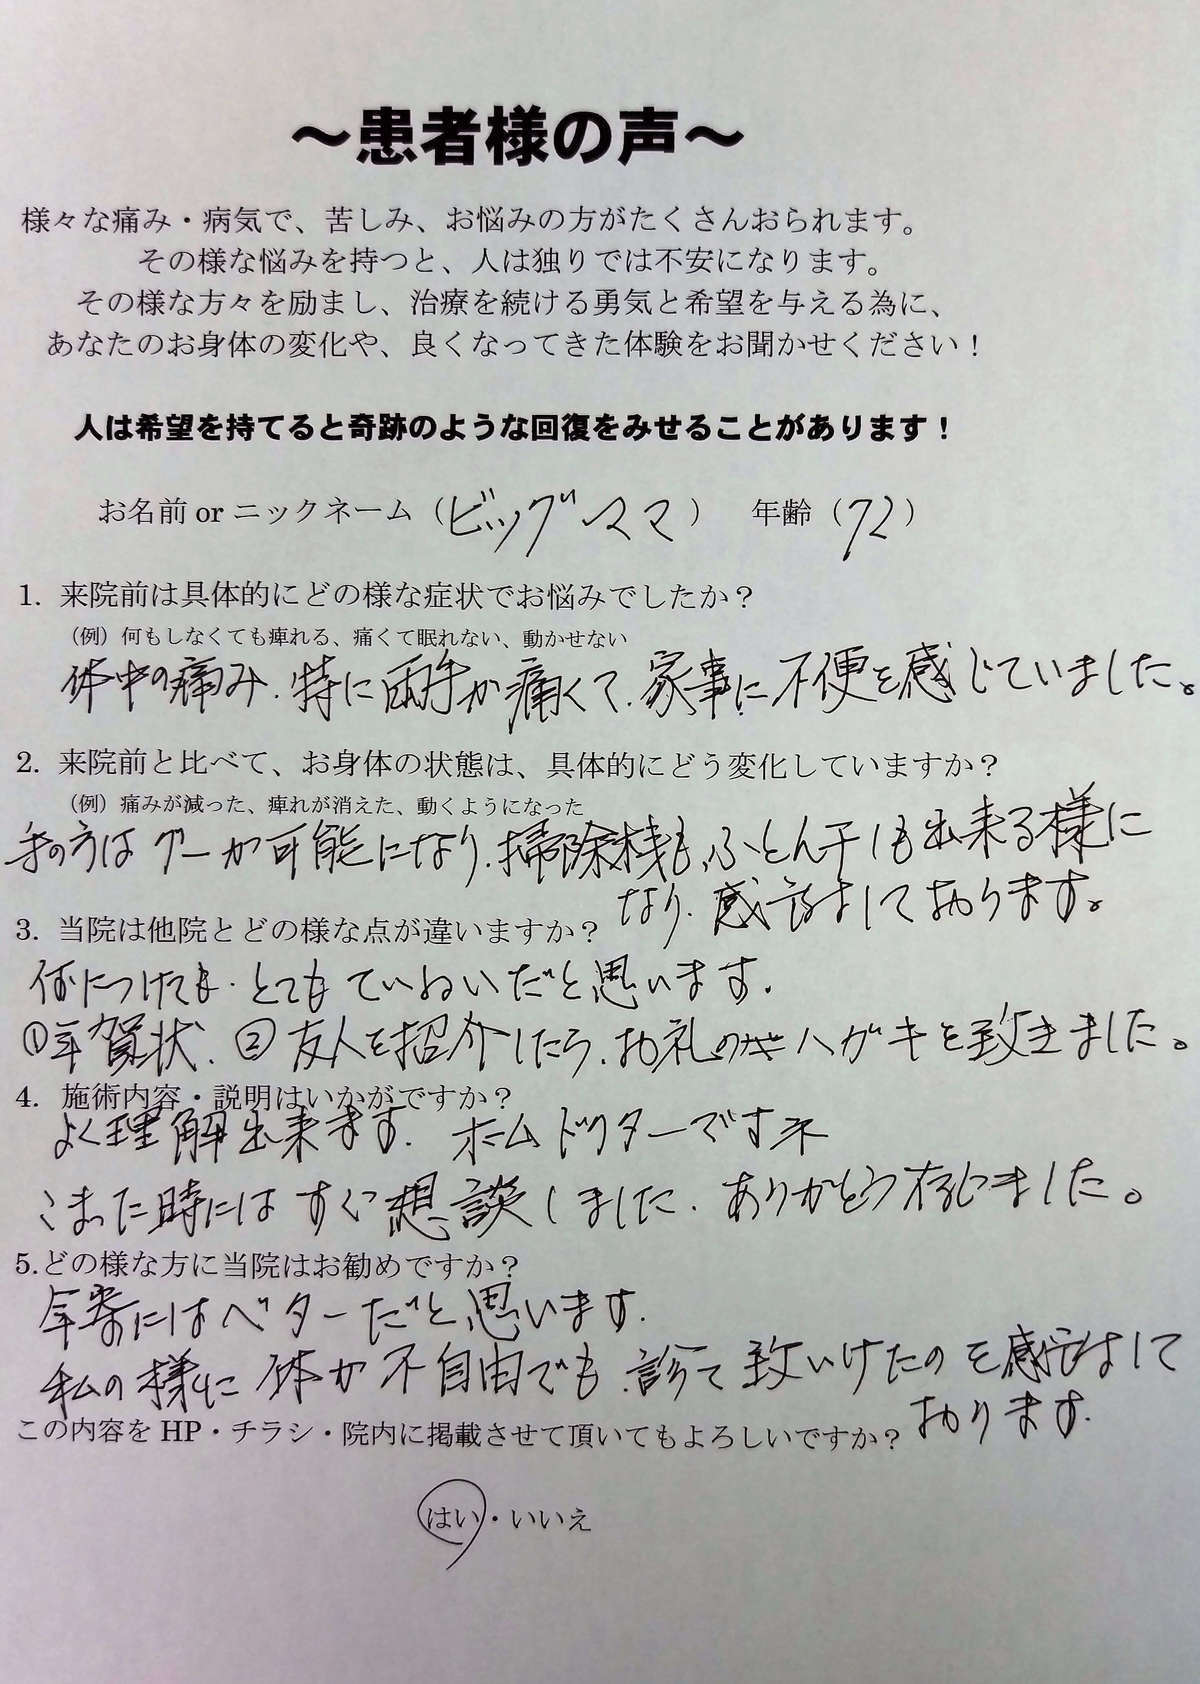 ～患者様の声～
様々な痛み・病気で、苦しみ、お悩みの方がたくさんおられます。
その様な悩みを持つと、人は独りでは不安になります。
その様な方々を励まし、治療を続ける勇気と希望を与える為に、
あなたのお身体の変化や、良くなってきた体験をお聞かせください！
人は希望を持てると奇跡のような回復をみせることがあります！
お名前 or ニックネーム（ビッグママ） 年齢（72）
1. 来院前は具体的にどの様な症状でお悩みでしたか？
（例）何もしなくても痺れる、痛くて眠れない、動かせない
体中の痛み.特に両手が痛くて.家事に不便を感じていました。
2. 来院前と比べて、お身体の状態は、具体的にどう変化していますか？
（例）痛みが減った、痺れが消えた、動くようになった
手の方はグーが可能になり.掃除機も.ふとん干しも出来る様に
なり.感謝しております。
3. 当院は他院とどの様な点が違いますか？
何につけても.とてもていねいだと思います.
①年賀状.②友人を紹介したら.お礼のハガキを致きました。
4. 施術内容・説明はいかがですか？
よく理解出来ます. ホームドクターですネ
こまった時にはすぐ想談しました.ありがとう存じました。
5.どの様な方に当院はお勧めですか？
年寄にはベターだと思います.
私の様に体が不自由でも.診て致いけたのを感謝して
おります.
この内容を HP・チラシ・院内に掲載させて頂いてもよろしいですか？
はい・いいえ